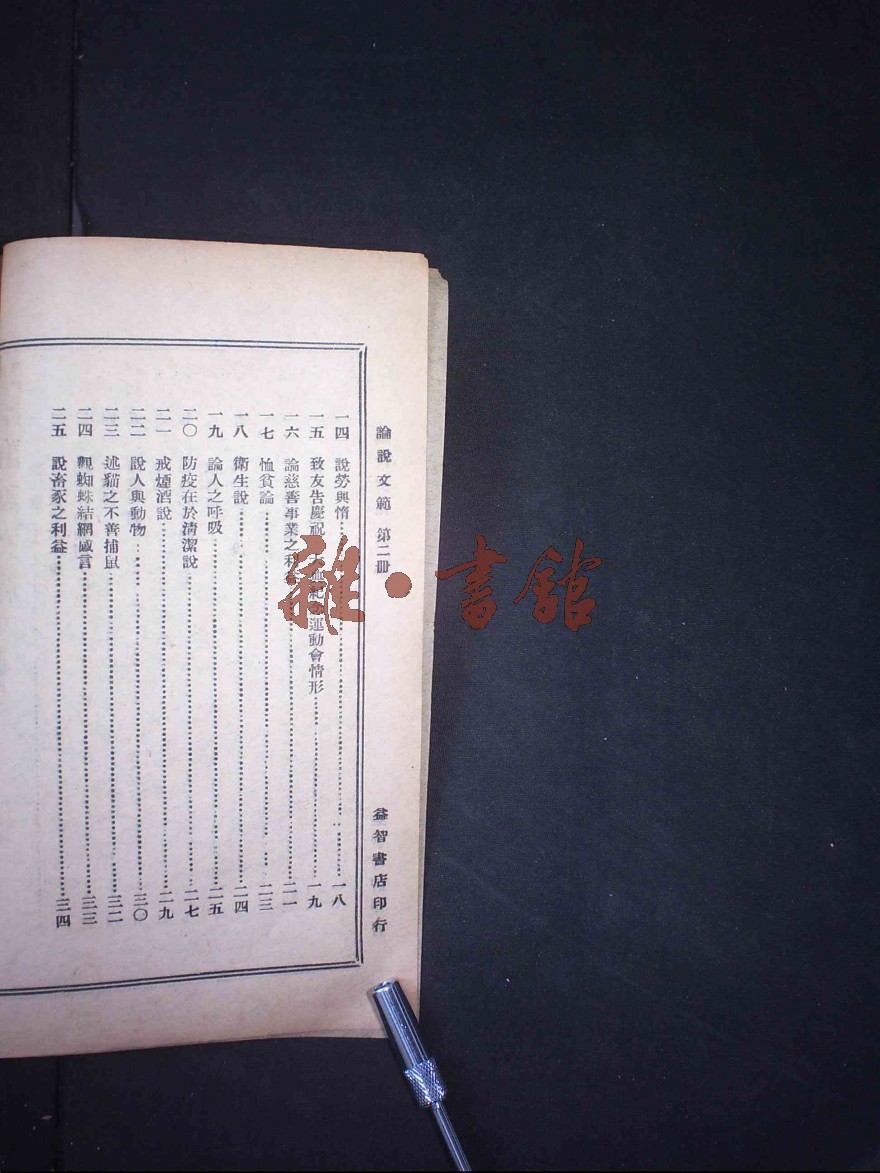 論說文範 第二冊
益智書店印行
一四 說勞與惰 一八
一五 致友告慶祝 紀念運動會情形 一九
一六 論慈善事業之利 二一
一七 恤貧論 二三
一八 衛生說 二四
一九 論人之呼吸 二五
二〇 防疫在於清潔說 二七
二一 戒煙酒說 二九
二二 說人與動物 三〇
二三 述貓之不善捕鼠 三二
二四 觀蜘蛛結網感言 三三
二五 說畜豕之利益 三四
雜·書館